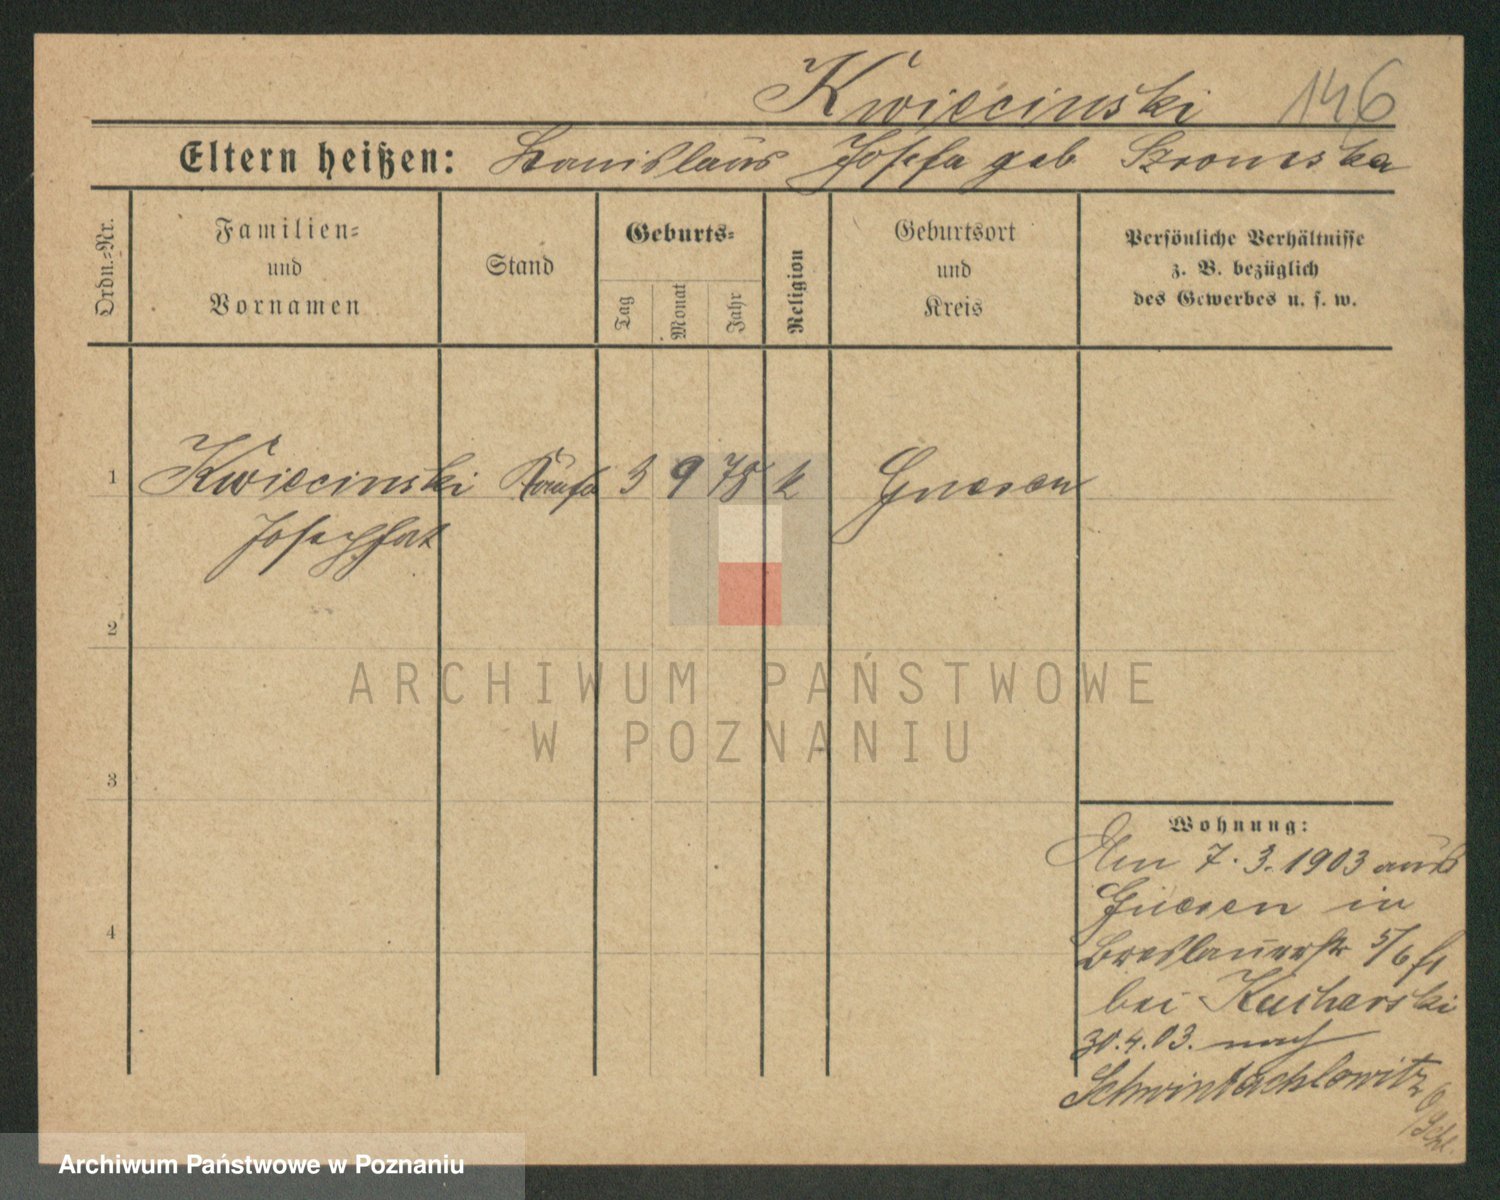 Kwiecinski 146
Eltern heißen: Stanislaus Josefa geb Szromska
Ordn.-Nr.
Familien-
und
Vornamen
Stand
Geburts-
Tag
Monat
Jahr
Religion
Geburtsort
und
Kreis
Persönliche Verhältnisse
z. B. bezüglich
des Gewerbes u. s. w.
1 Kwiecinski 3 9 78 k Gnesen
Josephat
2
ARCHIWUM PAŃSTWOWE
W POZNANIU
3
Wohnung:
Am 7.3.1903 aus
Gnesen in
4
Breslauerstr 5/6
bei Kucharski
30.4.03. nach
Schwintochlowitz O/Schl.
Archiwum Państwowe w Poznaniu